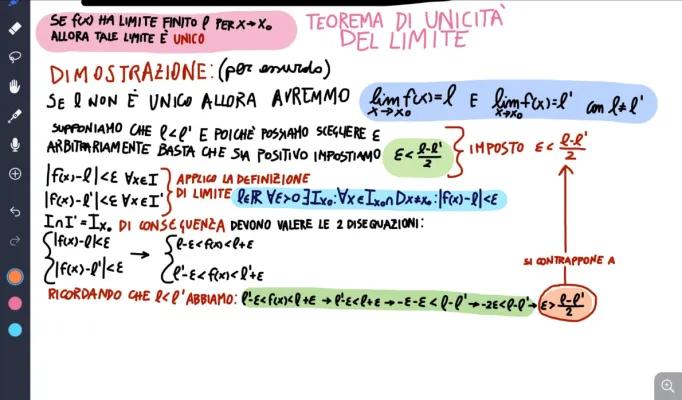 SE f(x) HA LIMITE FINITO l PER x→x₀
ALLORA TALE LIMITE È UNICO
TEOREMA DI UNICITÀ
DEL LIMITE
DIMOSTRAZIONE: (per assurdo)
SE l NON È UNICO ALLORA AVREMMO lim f(x)=l E lim f(x)=l' con l≠l'
x→x₀ x→x₀
SUPPONIAMO CHE l<l' E POICHÈ POSSIAMO SCEGLIERE ε
ARBITRARIAMENTE BASTA CHE SIA POSITIVO IMPOSTIAMO ε<(l-l')/2 } IMPOSTO ε<(l-l')/2
|f(x)-l|<ε ∀x∈I' } APPLICO LA DEFINIZIONE
|f(x)-l'|<ε ∀x∈I' } DI LIMITE l∈ℝ ∀ε>0 ∃Ix₀:∀x∈Ix₀∩D x≠x₀:|f(x)-l|<ε
I∩I'=Ix₀ DI CONSEGUENZA DEVONO VALERE LE 2 DISEQUAZIONI:
{|f(x)-l|<ε → {l-ε<f(x)<l+ε
{|f(x)-l'|<ε {l'-ε<f(x)<l'+ε
SI CONTRAPPONE A
RICORDANDO CHE l<l' ABBIAMO: l'-ε<f(x)<l+ε → l'-ε<l+ε → -ε-ε<l-l' → -2ε<l-l' → ε>(l-l')/2